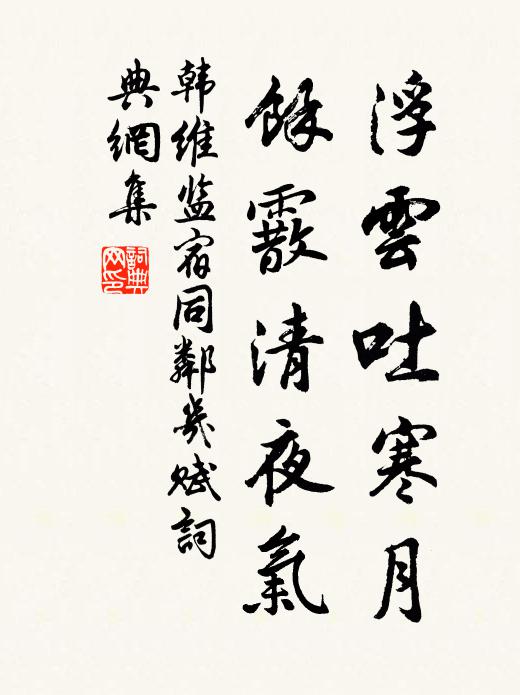 浮雲吐寒月
餘霰清夜氣
韩維监宿同鄰幾赋詞
典網集
詞典
网印